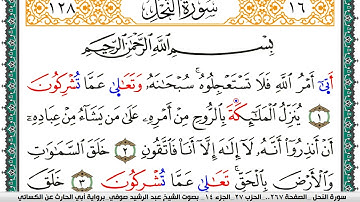 ١٦ سُورَةُ النَّحْلِ ١٢٨
بِسْمِ اللَّهِ الرَّحْمَٰنِ الرَّحِيمِ
أَتَىٰ أَمْرُ اللَّهِ فَلَا تَسْتَعْجِلُوهُ سُبْحَانَهُۥ وَتَعَالَىٰ عَمَّا تُشْرِكُونَ
١ يُنَزِّلُ الْمَلَـٰٓئِكَةَ بِالرُّوحِ مِنْ أَمْرِهِۦ عَلَىٰ مَن يَشَآءُ مِنْ عِبَادِهِۦٓ
أَنْ أَنذِرُوٓا۟ أَنَّهُۥ لَآ إِلَٰهَ إِلَّآ أَنَا۠ فَاتَّقُونِ ٢ خَلَقَ السَّمَٰوَٰتِ
وَالْأَرْضَ بِالْحَقِّ تَعَالَىٰ عَمَّا تُشْرِكُونَ ٣ خَلَقَ
سورة النحل .. الصفحة ٢٦٧ .. الحزب ٢٧ .. الجزء ١٤ .. بصوت الشيخ عبد الرشيد صوفي .. برواية أبي الحارث عن الكسائي